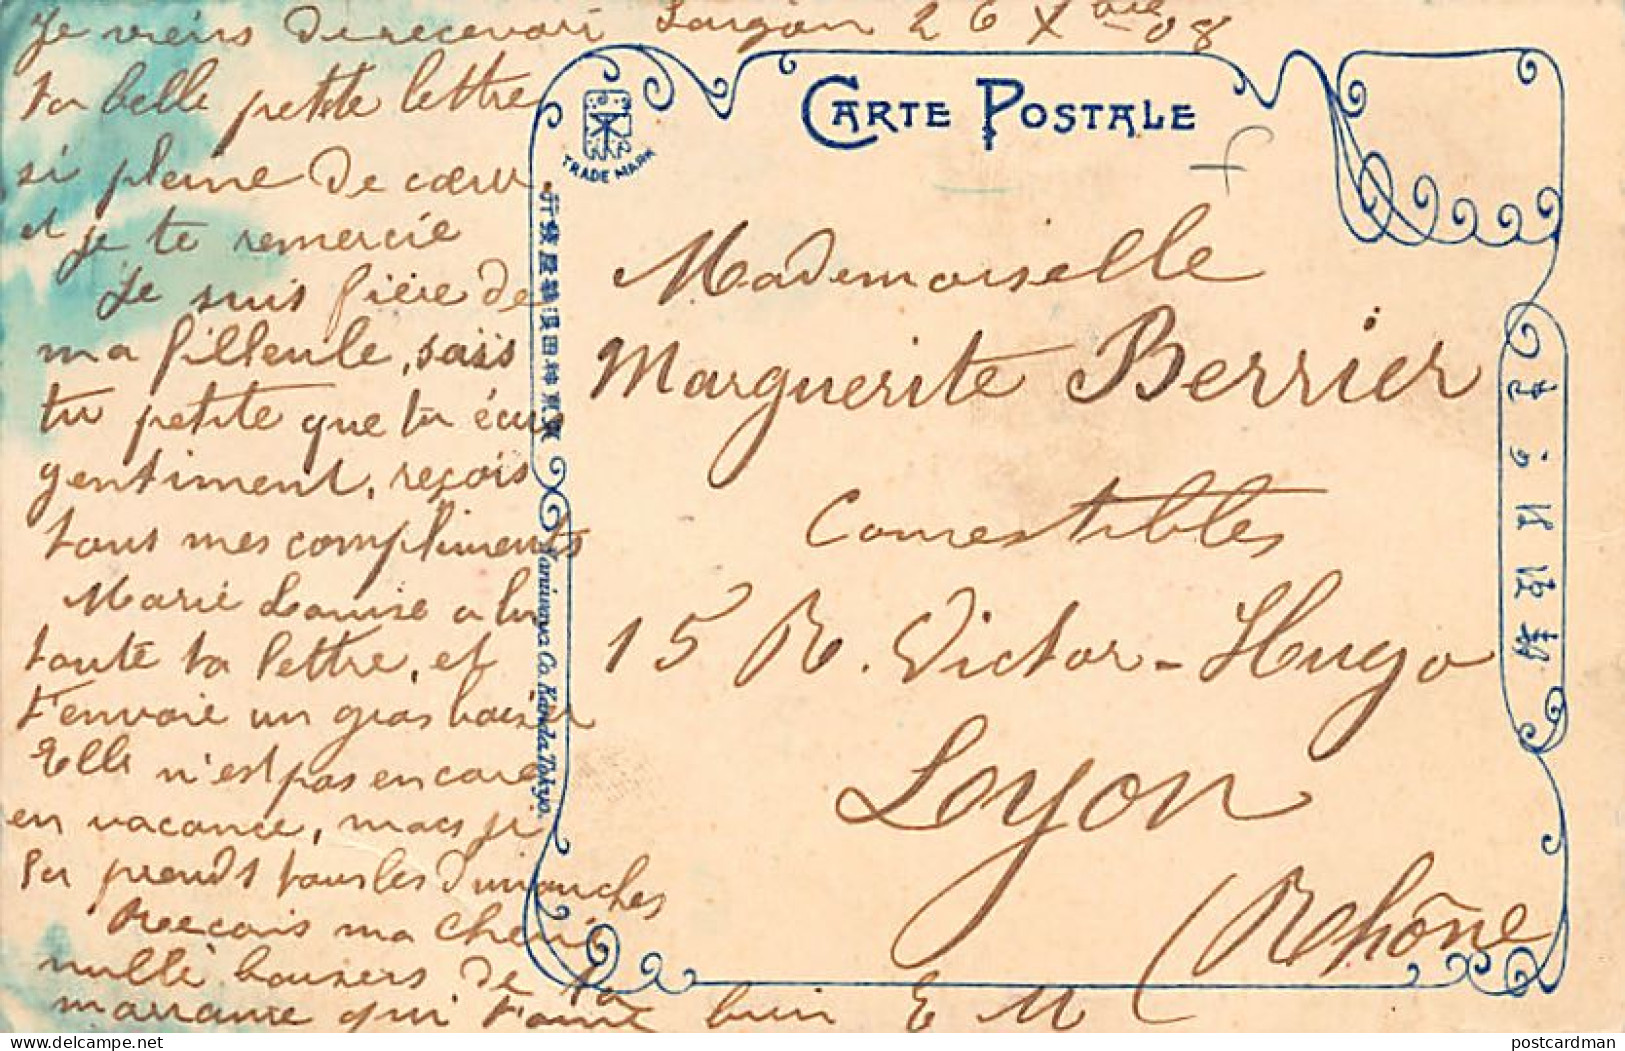 Saïgon 26 Xbre 08
Je viens de recevoir
ta belle petite lettre
si pleine de cœur
et je te remercie
Je suis fière de
ma filleule, sais
tu petite que tu écris
gentiment, reçois
tous mes compliments
Marie Louise a lu
toute ta lettre, et
t'envoie un gros baiser
Elle n'est pas encore
en vacance, mais je
la prends tous les Dimanches
Reçois ma cherie
mille baisers de ta
marraine qui t'aime bien E M
CARTE POSTALE
TRADE MARK
Mademoiselle
Marguerite Berrier
Comestibles
15 R. Victor-Hugo
Lyon
(Rhône
Kamigataya Co. Kanda Tokyo.
postcardman